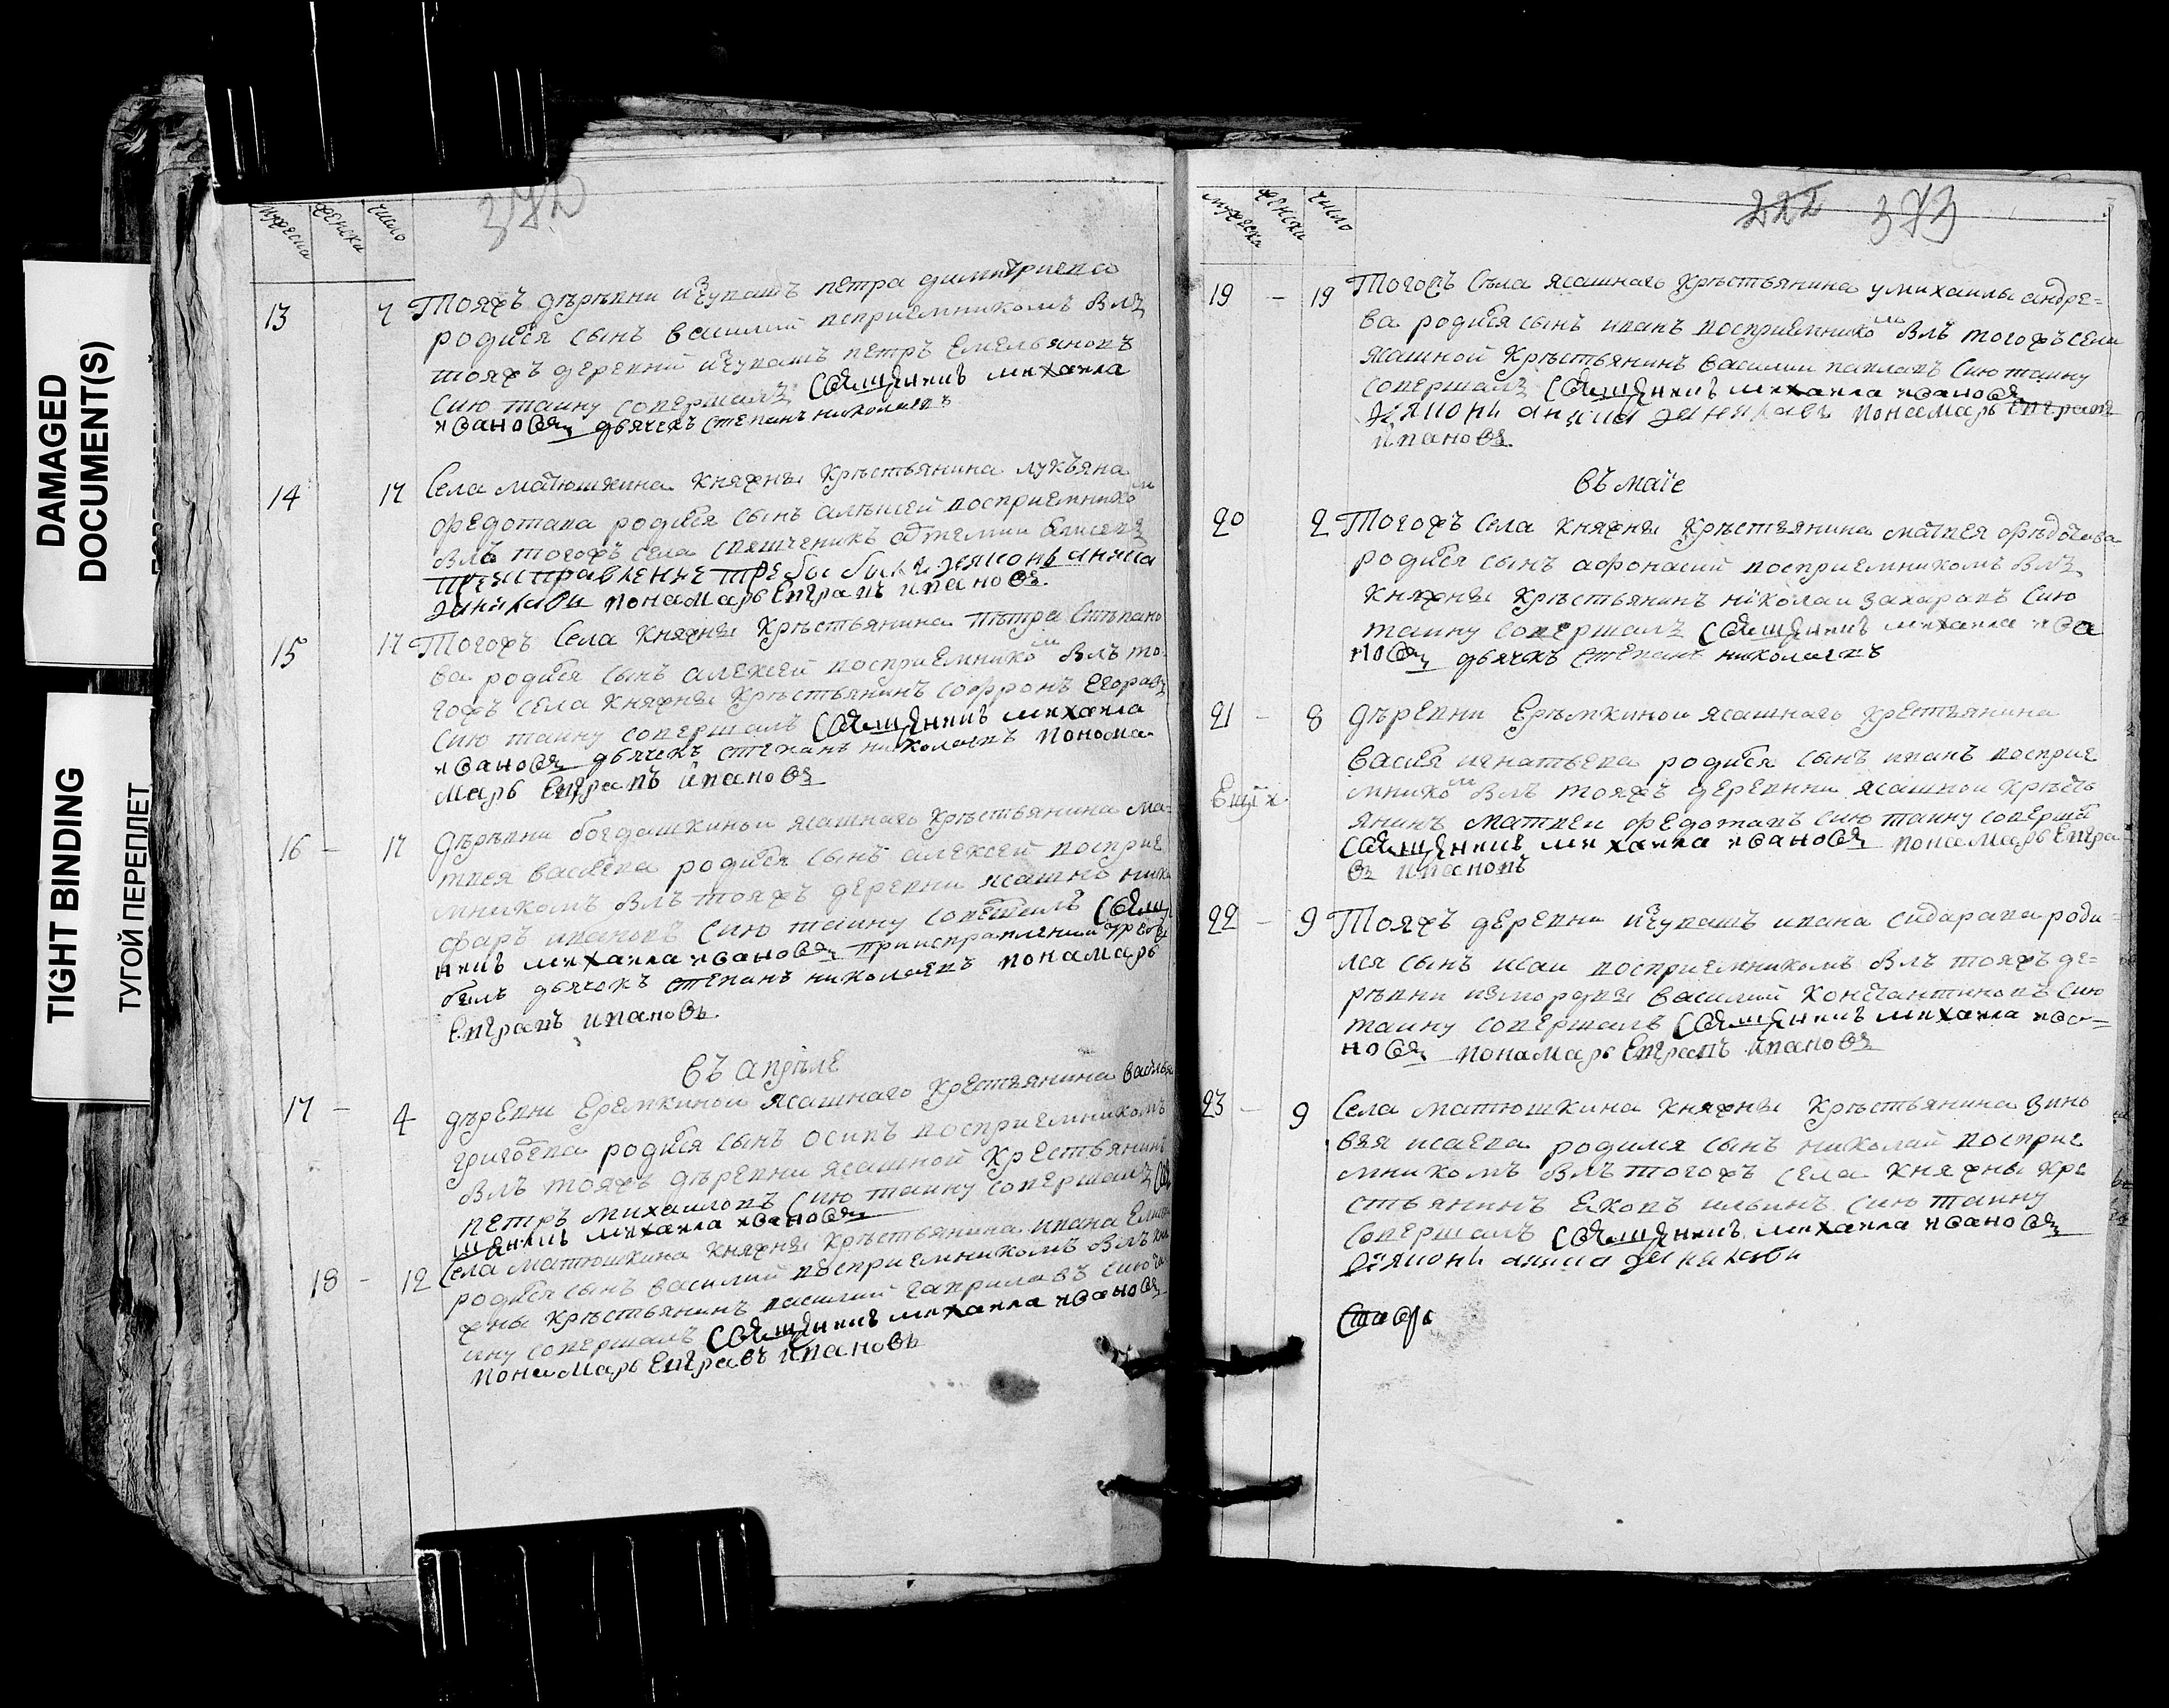 DAMAGED
DOCUMENT(S)
TIGHT BINDING
ТУГОЙ ПЕРЕПЛЕТ
372
мужеска женска число
13 7 Тояжъ дѣрѣвни петра димитриева
родился сынъ василий восприемникомъ былъ
тояжъ деревни петръ Емельяновъ
сию таину совершалъ священникъ михаила
ивановъ дьячекъ степанъ николаевъ
14 17 Села матюшкина княжны крѣстьянина лукъяна
федотава родился сынъ алѣксей восприемником
былъ тогожъ села
требы были диаконъ аника
данилавъ понамарь Евгравъ ивановъ
15 17 Тогожъ Села княжны крѣстьянина пѣтра Стѣпано
ва родился сынъ алексей восприемником былъ то
гожъ села княжны крѣстьянинъ софронъ Егоравъ
сию таину совершалъ священникъ михаила
ивановъ дьячекъ степанъ николаевъ понома
марь Евгравъ ивановъ
16 – 17 Дѣрѣвни богдашкиной ясашнаго крѣстьянина ма-
твея васильева родился сынъ алексей восприе
мникомъ былъ тояжъ деревни ясашнъ ники
фаръ ивановъ сию таину совершалъ Свяще
никъ михаила ивановъ при исправлении требы
былъ дьячокъ степанъ николаевъ понамарь
Евгравъ ивановъ
въ апрѣле
17 – 4 дѣревни Еремкиной ясашнаго крестьянина василья
григорева родился сынъ осипъ восприемникомъ
былъ тояжъ дѣревни ясашной крестьянинъ
петръ михаиловъ сию таину совершалъ свя
щеникъ михаила ивановъ
18 – 12 Села матюшкина княжны крѣстьянина ивана
родился сынъ василий восприемникомъ былъ кня
жны крѣстьянинъ василий гавриловъ сию та
ину совершалъ священикъ михаила ивановъ
понамарь Евгравъ ивановъ
222 373
мужеска женска число
19 – 19 Тогожъ Села ясашнаго крѣстьянина у михаилы андре-
ва родился сынъ иванъ восприемником былъ тогожъ села
ясашной крѣстьянинъ василии павлавъ Сию таину
совершалъ священикъ михаила ивановъ
диаконъ аника данилавъ понамарь Евгравъ
ивановъ
въ маїе
20 2 Тогожъ Села княжны крѣстьянина матвея фѣдотава
родился сынъ афонасий восприемникомъ былъ
княжны крѣстьянинъ николаи захаравъ Сию
таину совершалъ священикъ михаила ива
новъ дьячекъ степанъ николаевъ
21 – 8 дѣревни Ерѣмкинои ясашнаго крестьянина
василя игнатьева родился сынъ иванъ восприе
мником былъ тояжъ деревни ясашнои крѣсть
янинъ матвеи федотавъ сию таину соверша
священикъ михаила ивановъ понамарь Евгра
въ ивановъ
22 – 9 Тояжъ деревни ивана сидарава роди-
лся сынъ исаи восприемникомъ былъ тояжъ де-
рѣвни василий константиновъ сию
таину совершалъ священикъ михаила ива-
новъ понамарь Евгравъ ивановъ
23 – 9 Села матюшкина княжны крѣстьянина зино
вья исаева родился сынъ николай восприе
мникомъ былъ тогожъ села княжны кре
стьянинъ ековъ ильинъ сию таину
совершалъ священикъ михаила ивановъ
диаконъ аника данилавъ